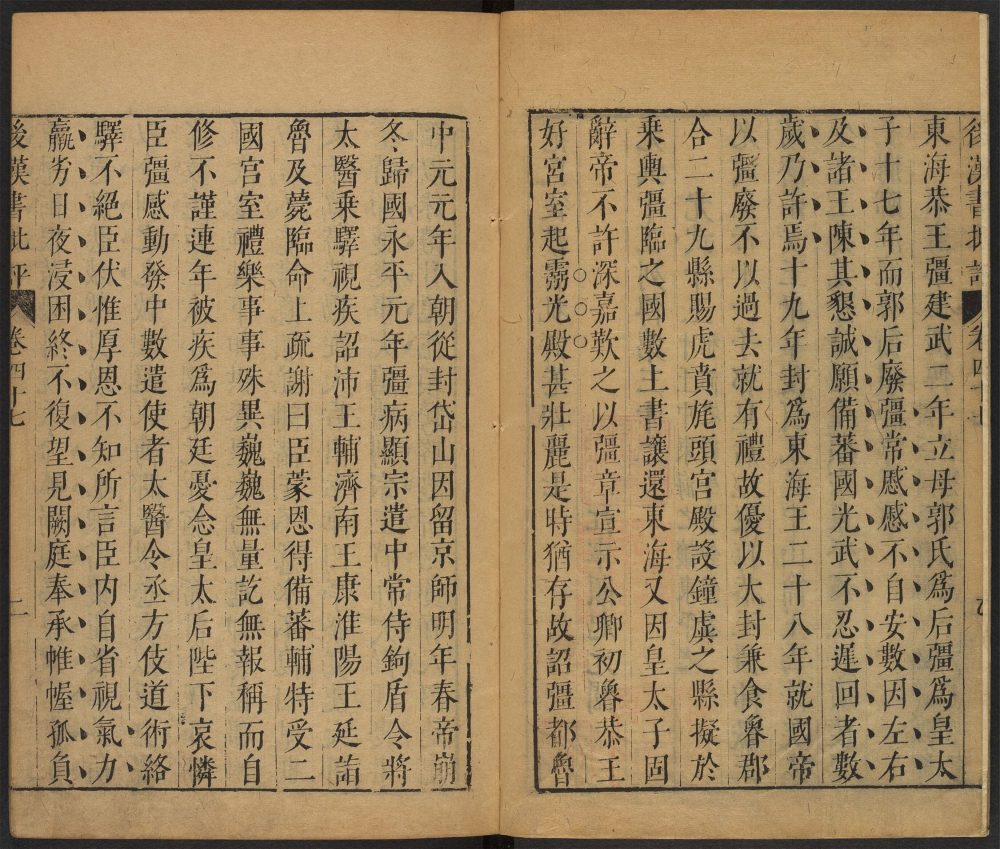 後漢書批評 卷四十七
東海恭王彊建武二年立母郭氏爲后彊爲皇太
子十七年而郭后廢彊常慼慼不自安數因左右
及諸王陳其懇誠願備蕃國光武不忍遲回者數
歲乃許焉十九年封爲東海王二十八年就國帝
以彊廢不以過去就有禮故優以大封兼食魯郡
合二十九縣賜虎賁旄頭宮殿設鐘虡之縣擬於
乗輿彊臨之國數上書讓還東海又因皇太子固
辭帝不許深嘉歎之以彊章宣示公卿初魯恭王
好宮室起靈光殿甚壯麗是時猶存故詔彊都魯
中元元年入朝從封岱山因留京師明年春帝崩
冬歸國永平元年彊病顯宗遣中常侍鉤盾令將
太醫乗驛視疾詔沛王輔濟南王康淮陽王延詣
魯及薨臨命上疏謝曰臣蒙恩得備蕃輔特受二
國宮室禮樂事事殊異巍巍無量訖無報稱而自
修不謹連年被疾爲朝廷憂念皇太后陛下哀憐
臣彊感動發中數遣使者太醫令丞方伎道術絡
驛不絕臣伏惟厚恩不知所言臣内自省視氣力
羸劣日夜浸困終不復望見闕庭奉承帷幄孤負
後漢書批評 卷四十七 二